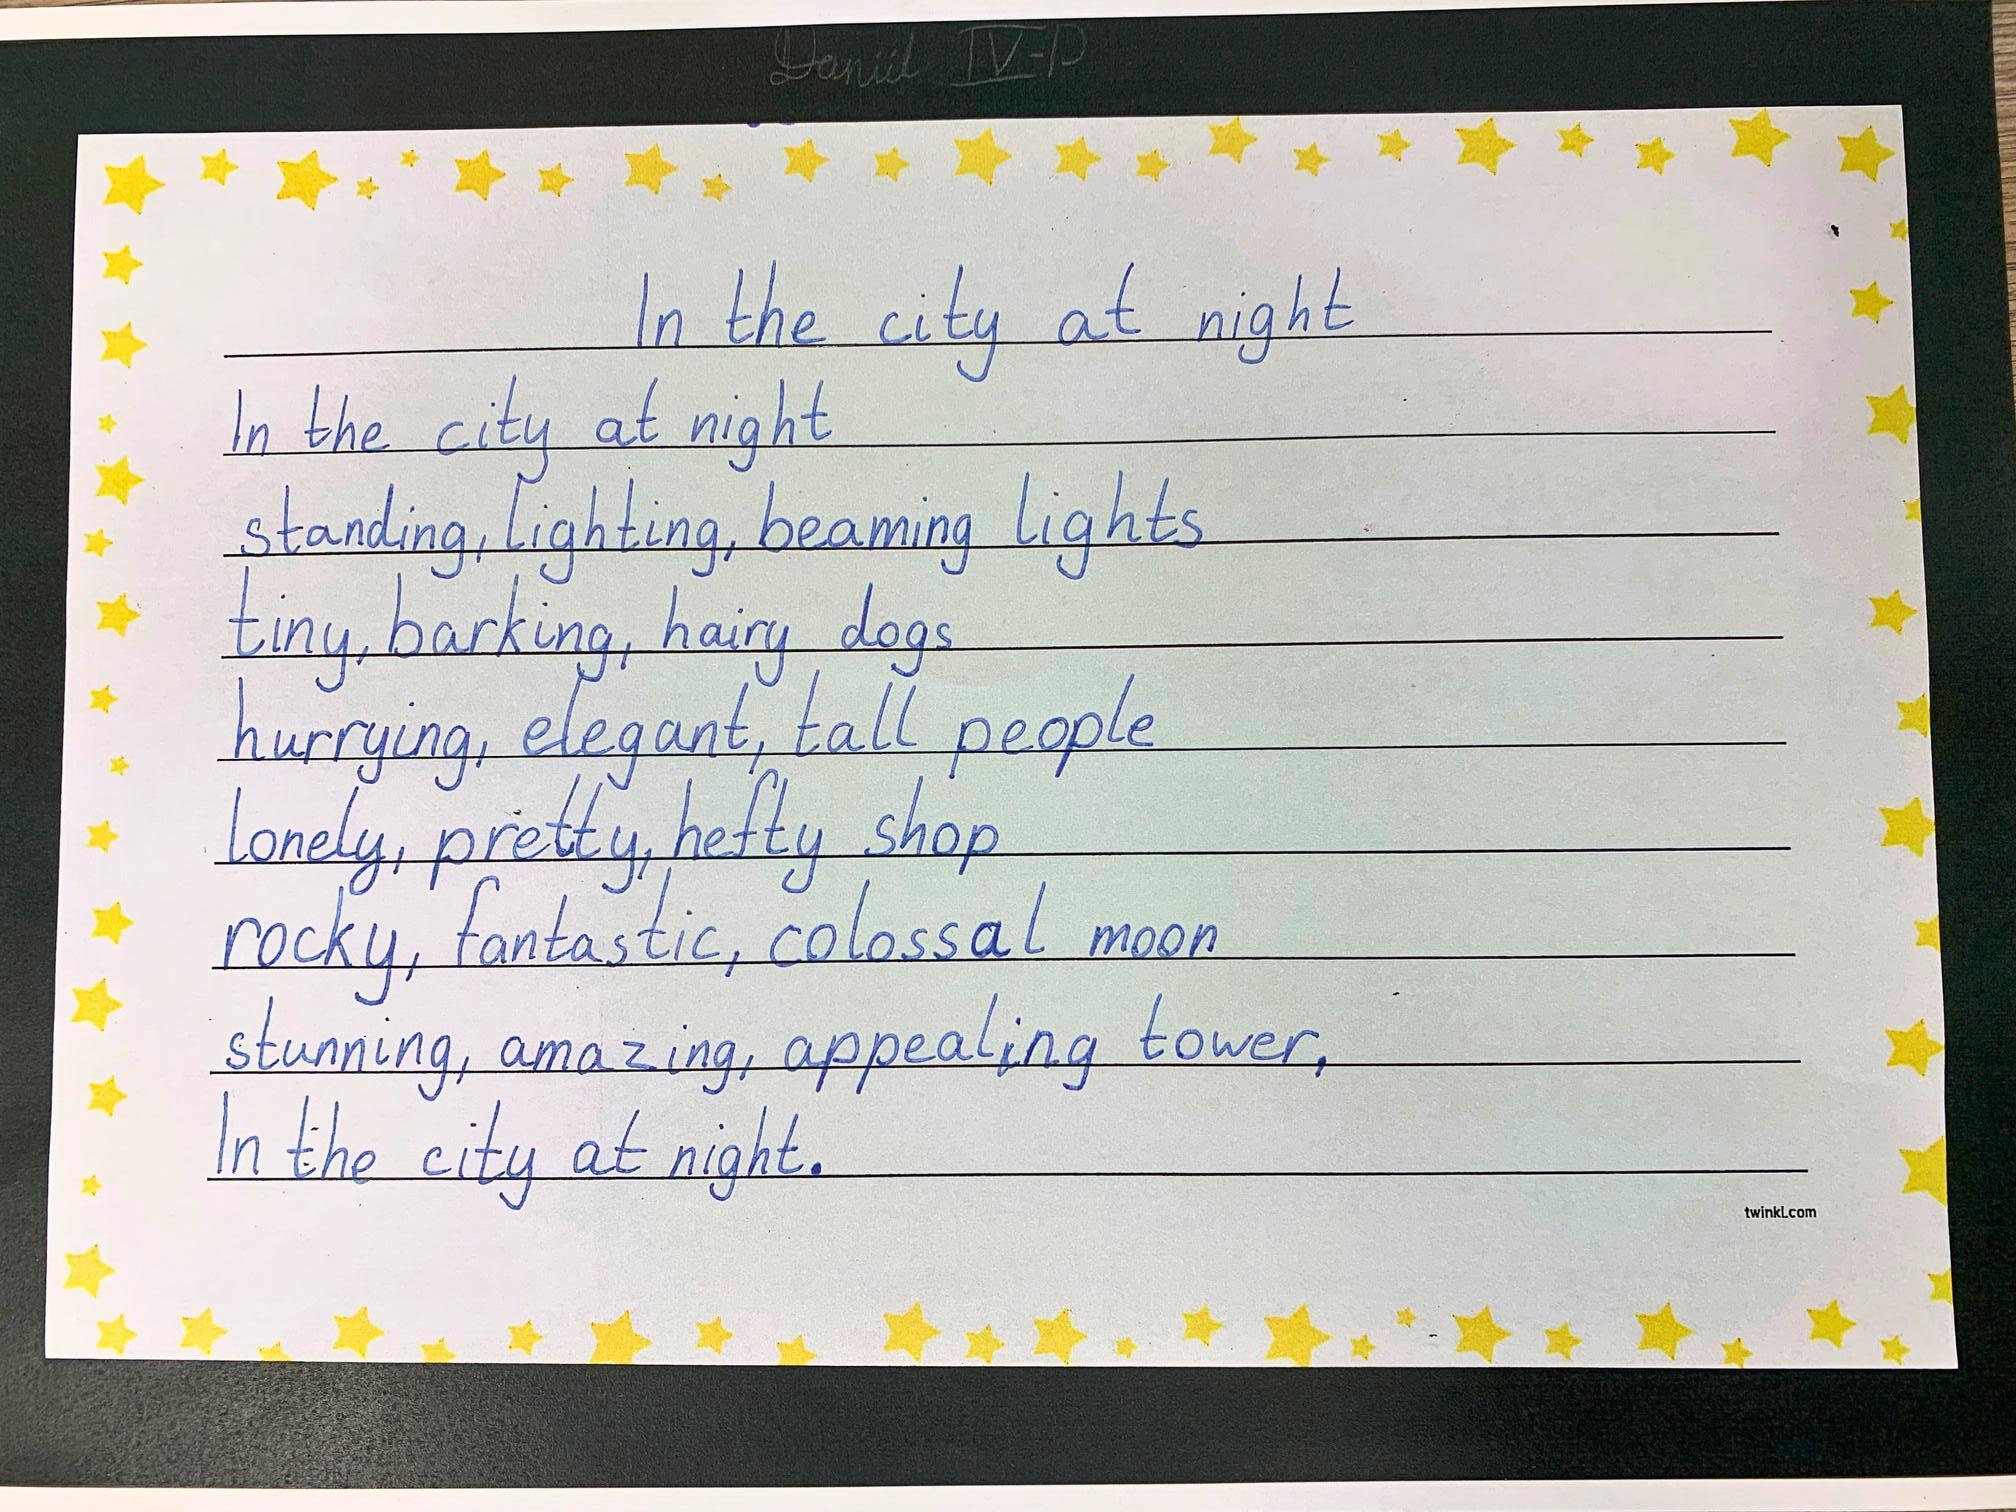 Daniil IV-D
In the city at night
In the city at night
standing, lighting, beaming lights
tiny, barking, hairy dogs
hurrying, elegant, tall people
lonely, pretty, hefty shop
rocky, fantastic, colossal moon
stunning, amazing, appealing tower,
In the city at night.
twinkl.com